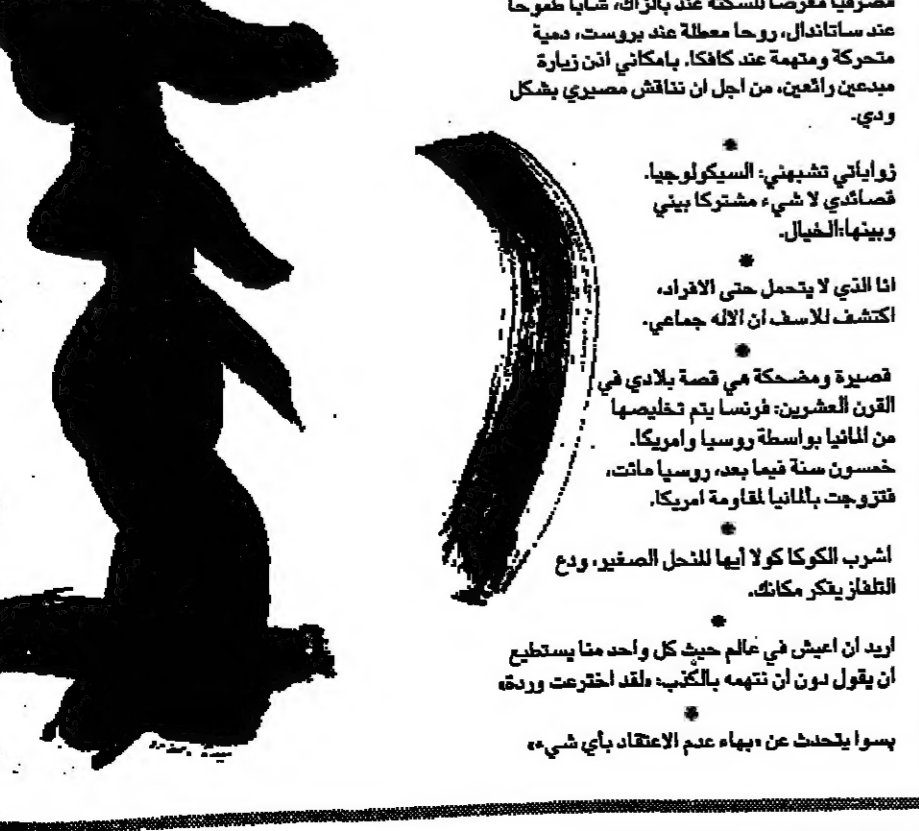 مصرفيا معرضا للسكتة عند بالزاك، شابا طموحا
عند ساتاندال، روحا معطلة عند بروست، دمية
متحركة ومتهمة عند كافكا. بامكاني اذن زيارة
مبدعين رائعين، من اجل ان نناقش مصيري بشكل
ودي.
*
زواياتي تشبهني: السيكولوجيا.
قصائدي لا شيء مشتركا بيني
وبينها:الخيال.
*
انا الذي لا يتحمل حتى الافراد،
اكتشف للاسف ان الاله جماعي.
*
قصيرة ومضحكة هي قصة بلادي في
القرن العشرين: فرنسا يتم تخليصها
من المانيا بواسطة روسيا وامريكا.
خمسون سنة فيما بعد، روسيا ماتت،
فتزوجت بألمانيا لمقاومة امريكا.
*
اشرب الكوكا كولا أيها النحل الصغير، ودع
التلفاز يفكر مكانك.
*
اريد ان اعيش في عالم حيث كل واحد منا يستطيع
ان يقول دون ان نتهمه بالكذب: «لقد اخترعت وردة»
*
بسوا يتحدث عن «بهاء عدم الاعتقاد بأي شيء»